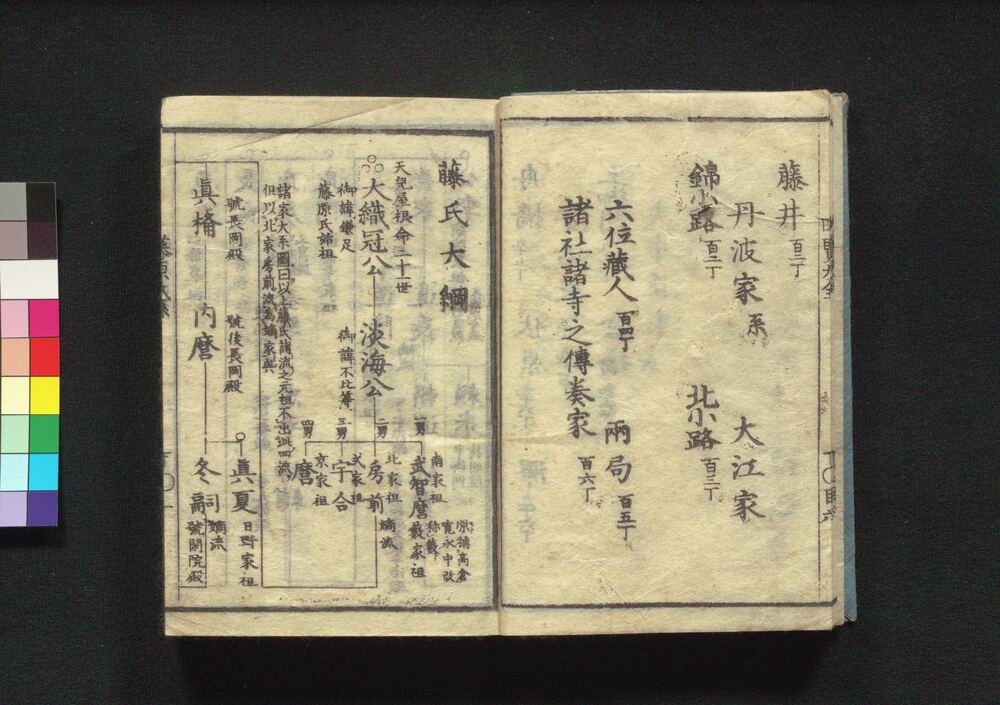 藤井 百二丁
丹波家系
錦小路 百二丁
大江家
北小路 百三丁
六位蔵人 百四丁
兩局 百五丁
諸社諸寺之傳奏家 百六丁
藤氏大綱
天兒屋根命二十一世
大織冠公
御諱鎌足
藤原氏始祖
淡海公
御諱不比等
諸家大系圖曰以上藤氏諸流之元祖不出此四流
但以北家房前流為嫡家與
一男 武智麿
南家祖
藪家祖
京搏高倉
寛永中改
称藪
二男 房前
北家祖
嫡流
三男 宇合
式家祖
四男 麿
京家祖
眞楯
號長岡殿
内麿
號後長岡殿
眞夏
日野家祖
冬嗣
嫡流
號閑院殿